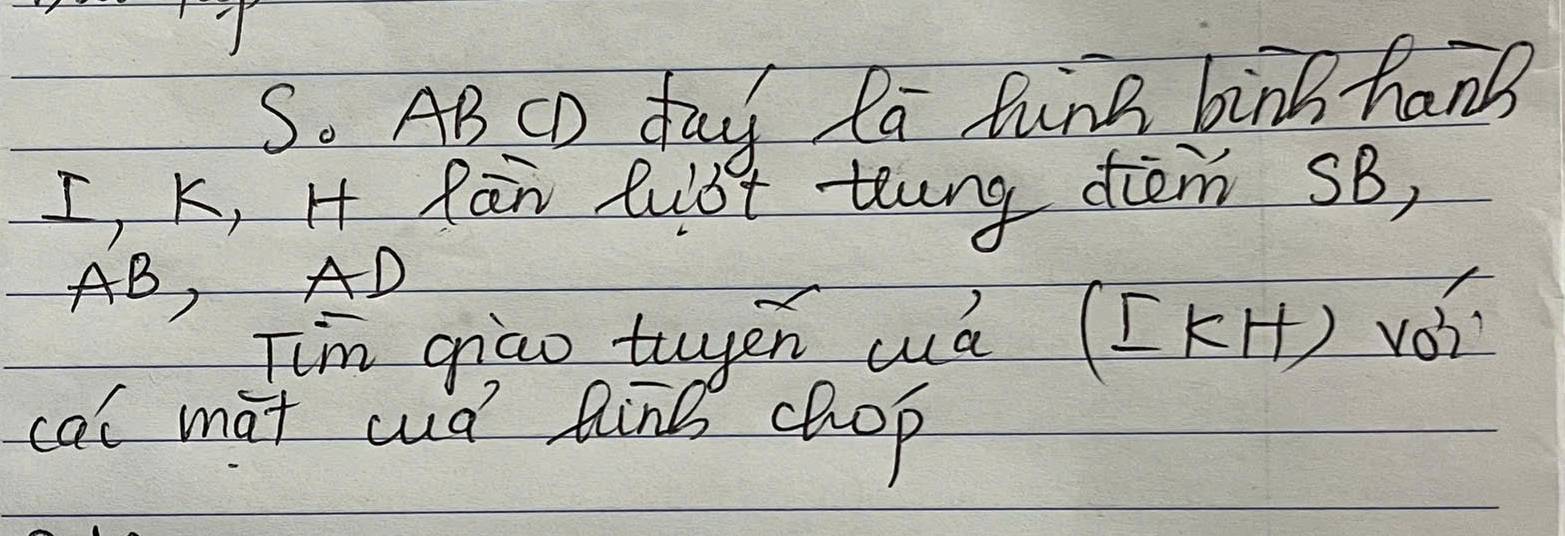 S. ABCD đáy là hình bình hành
I, K, H lần lượt trung điểm SB,
AB, AD
Tìm giao tuyến của (IKH) với
các mặt của hình chóp